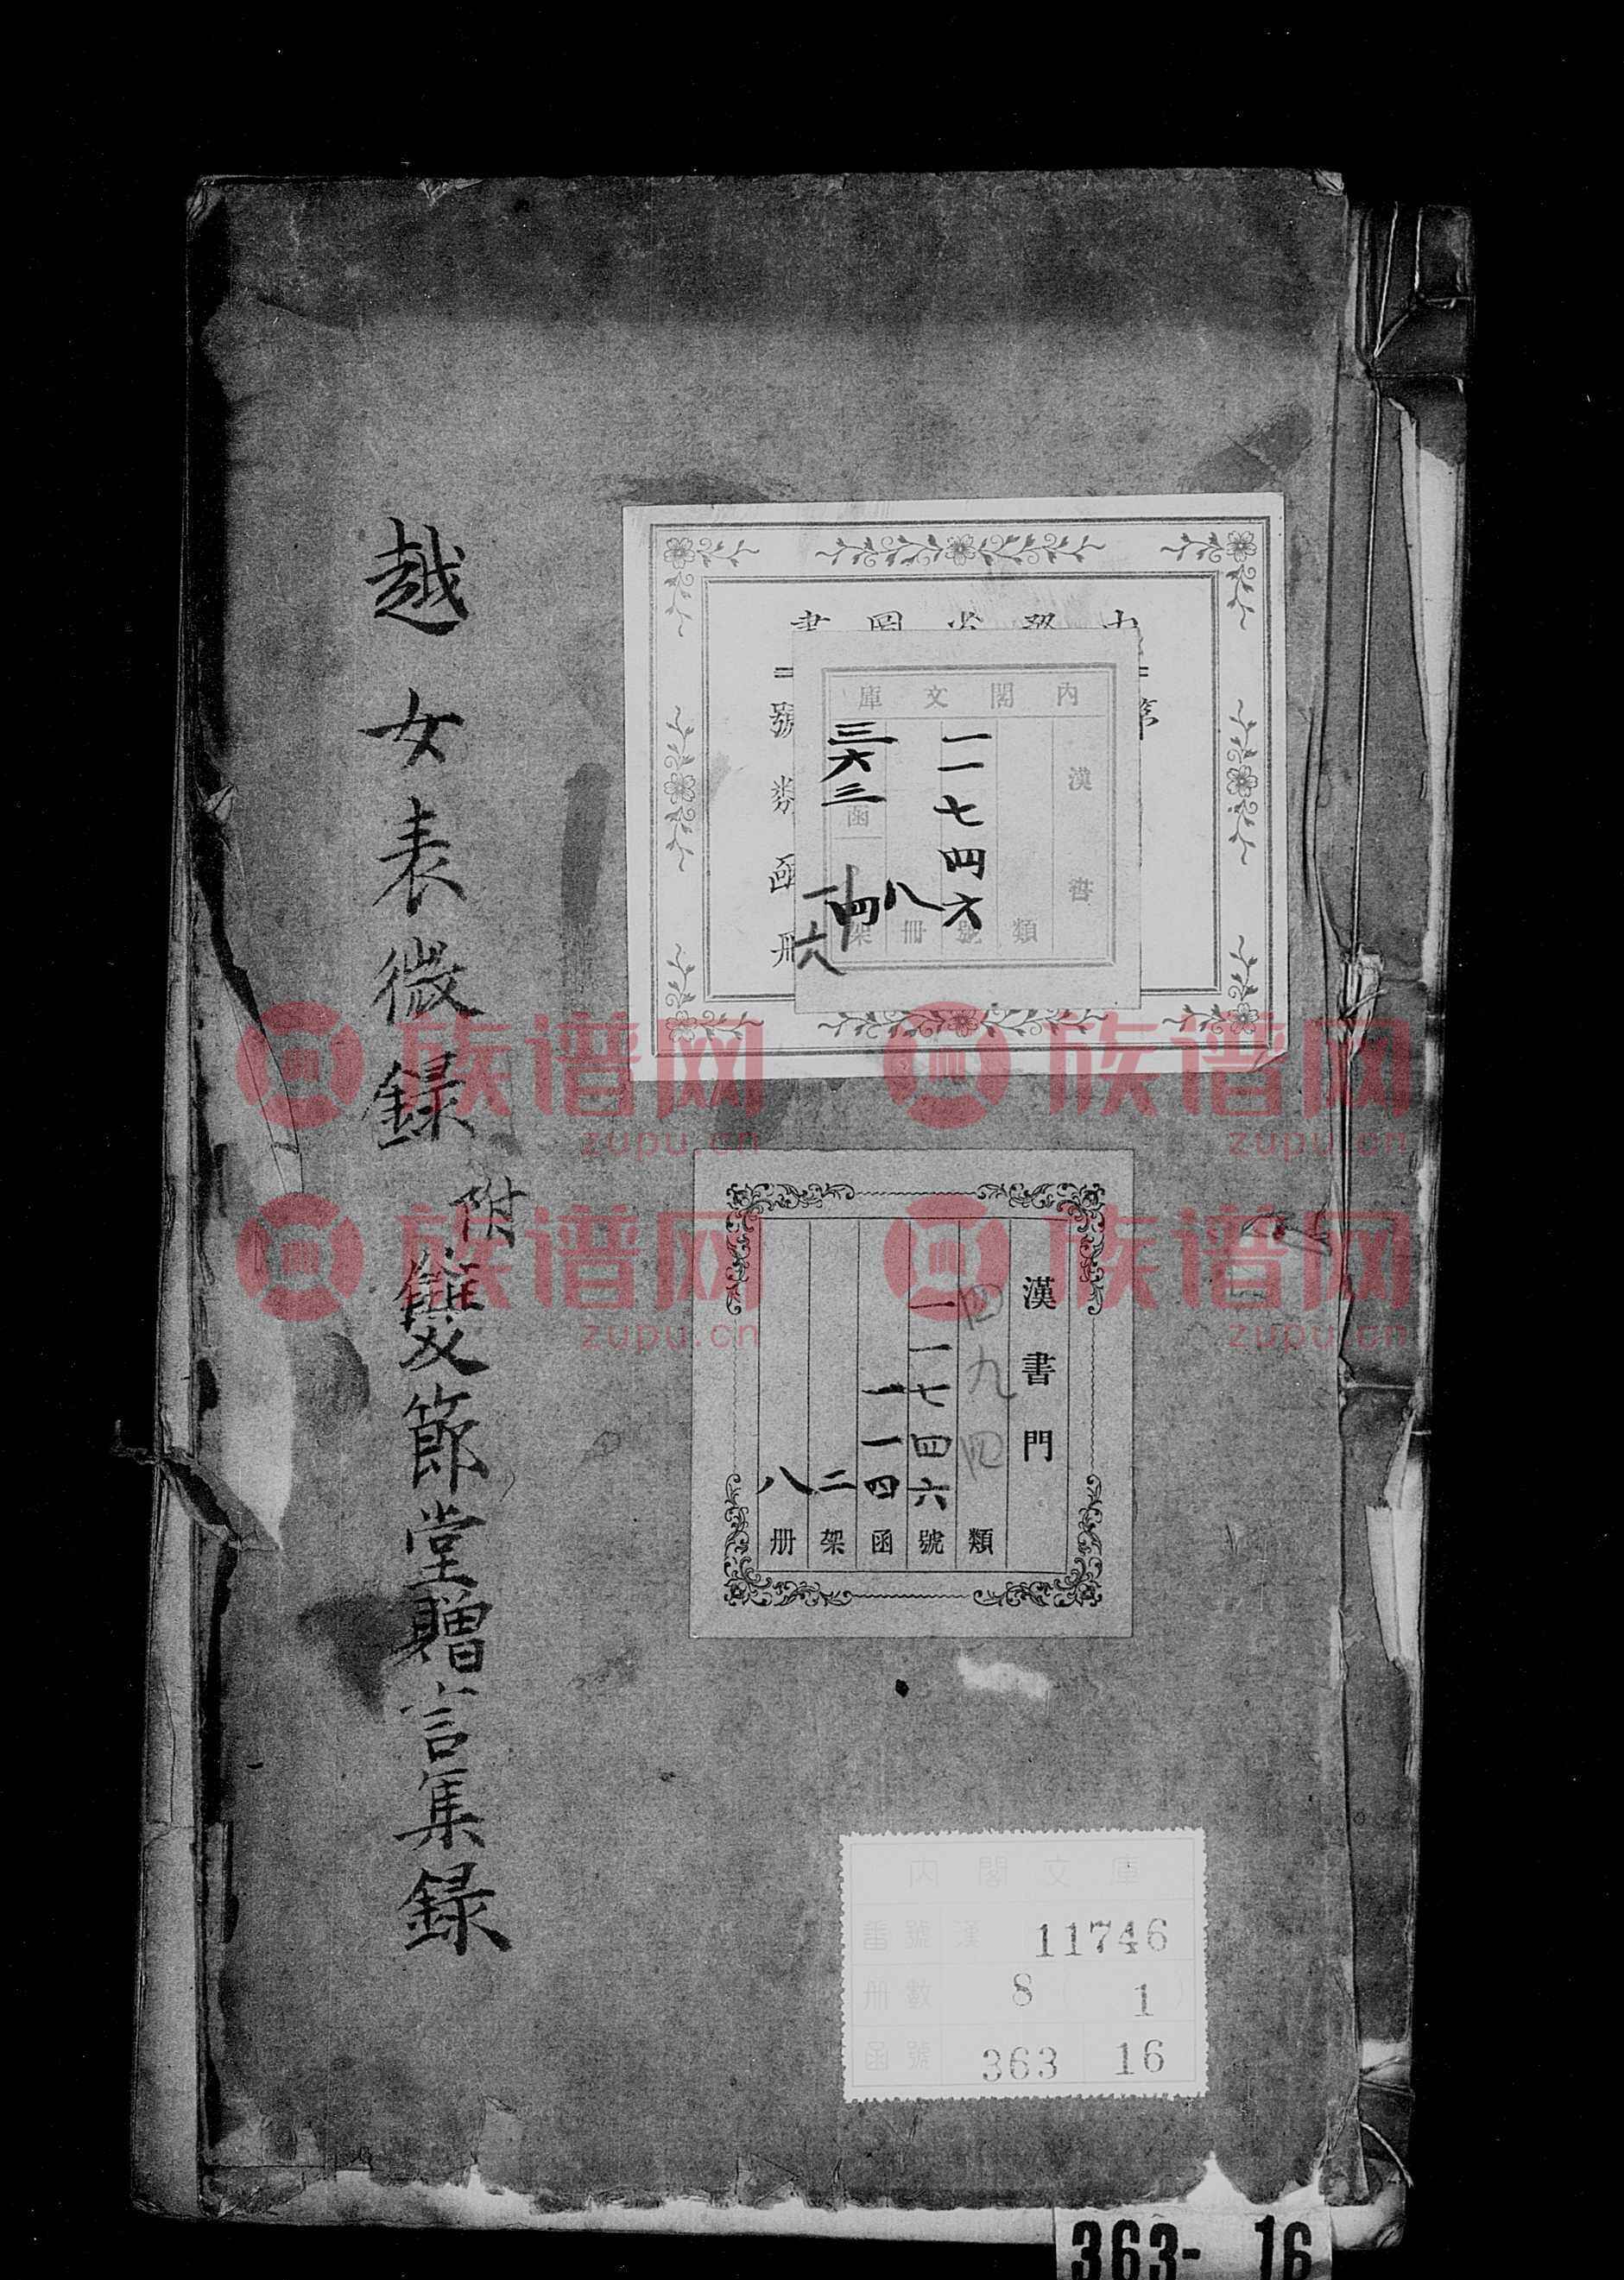 越女表微錄
附
雙節堂贈言集錄
號 類 函 冊
內閣文庫
漢書
類
一一七四六
號
八
冊
三六三
函
一四
架
一六
漢書門
四九四
類
一一七四六
號
一一四
函
二
架
八
册
內閣文庫
番號 漢 11746
冊數 8 ( 1 )
函號 363 16
363- 16
族谱网 族谱网
zupu.cn zupu.cn
族谱网 族谱网
zupu.cn zupu.cn